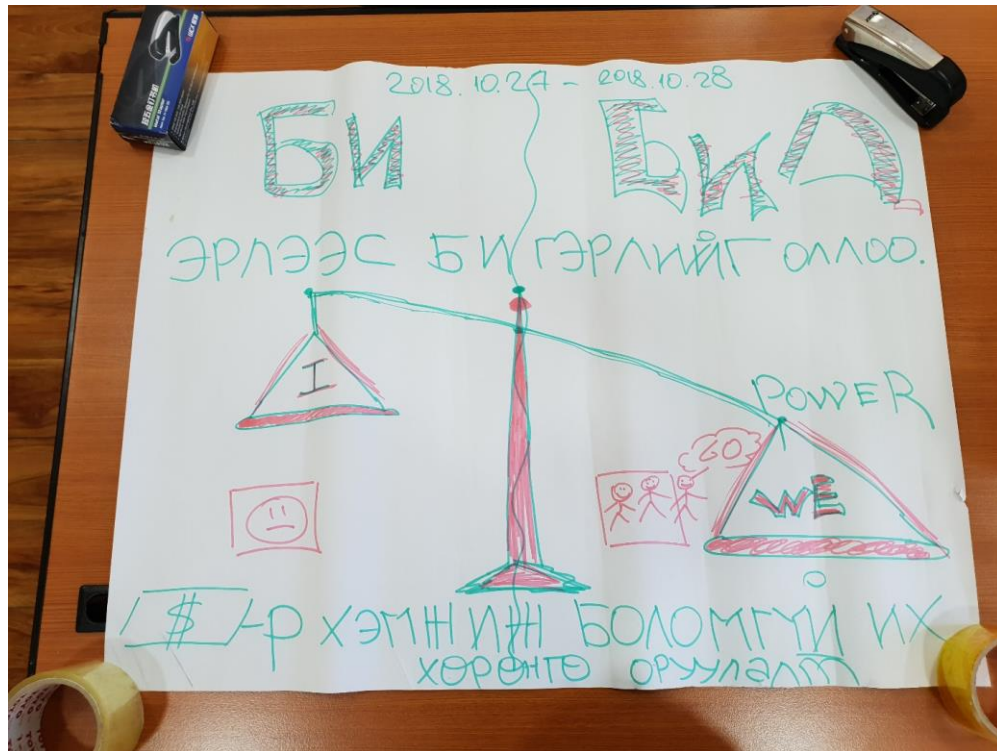 2018.10.24 - 2018.10.28
БИ
БИД
ЭРЛЭЭС БИ ГЭРЛИЙГ ОЛЛОО.
I
POWER
GO
WE
$-Р ХЭМЖИЖ БОЛОМГҮЙ ИХ
ХӨРӨНГӨ ОРУУЛАЛТ